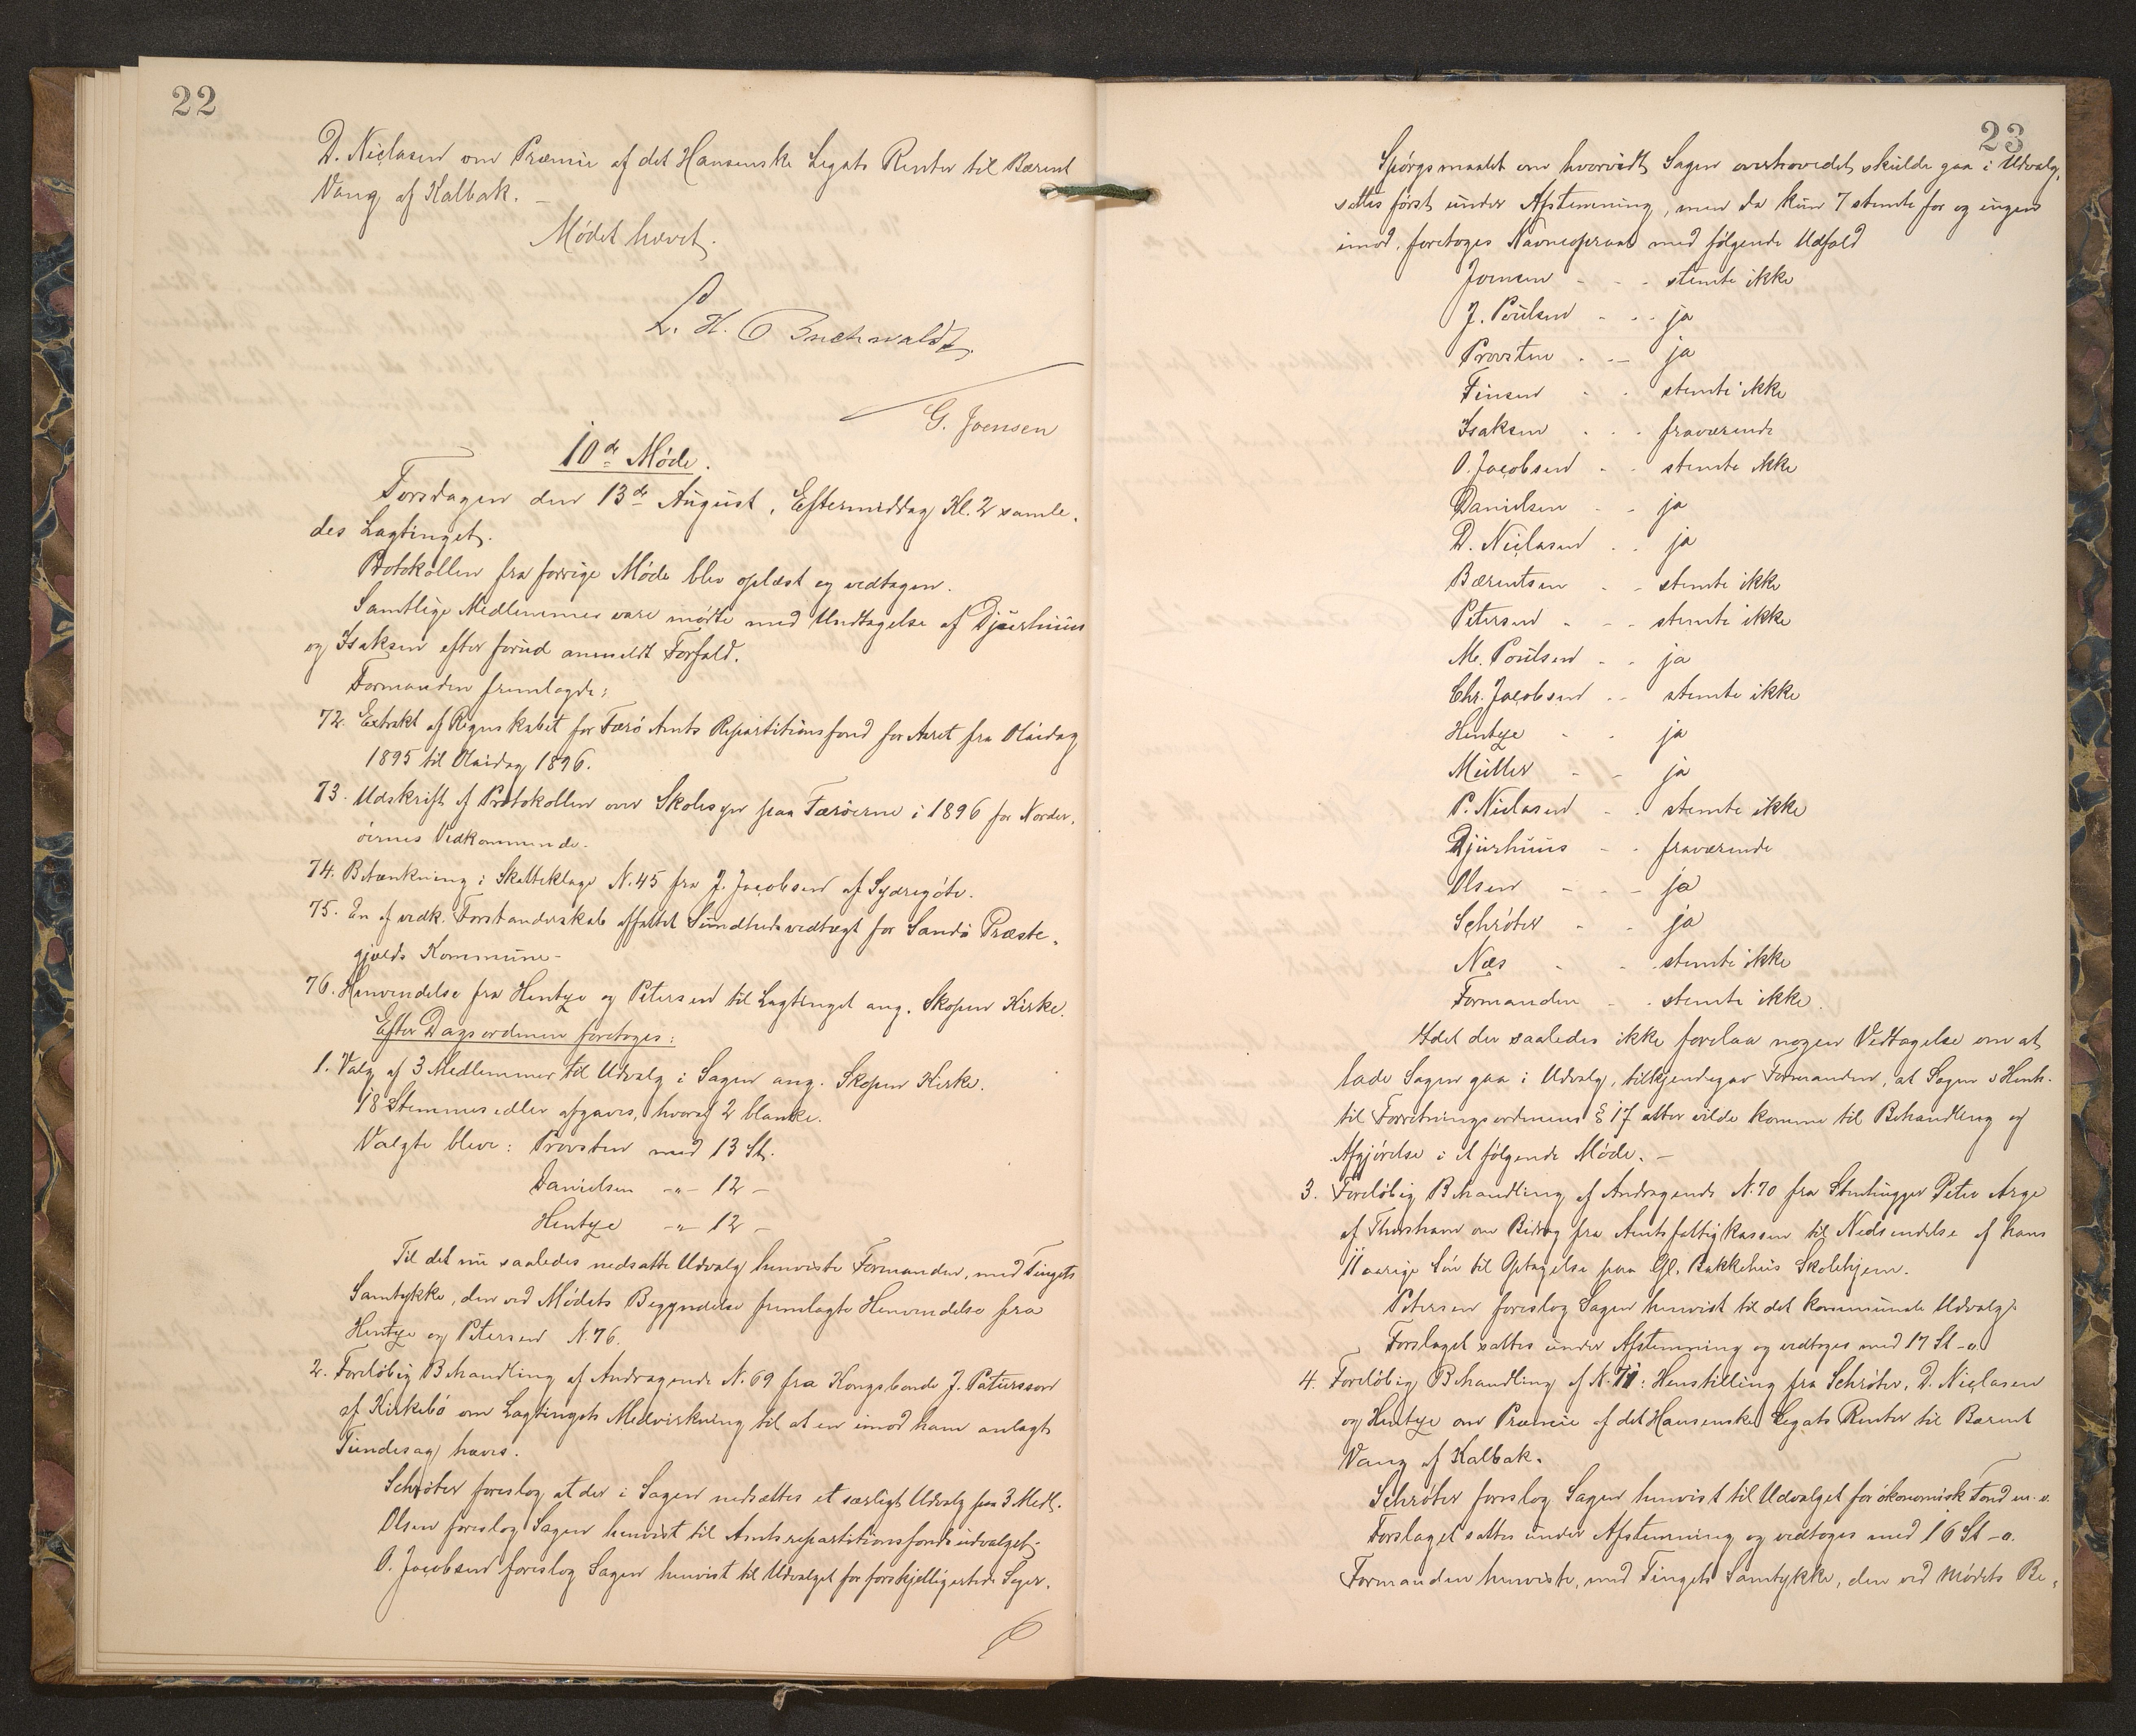 22
D. Niclasen om Præmie af det Hansenske Legats Renter til Bærent
Vang af Kalbak. –
Mødet hævet.
L. H. Buchwaldt
G. Joensen
10de Møde.
Torsdagen den 13de August, Eftermiddag Kl. 2 samle-
des Lagtinget.
Protokollen fra forrige Møde blev oplæst og vedtagen.
Samtlige Medlemmer vare mødte med Undtagelse af Djurhuus
og Isaksen efter forud anmeldt Forfald.
Formanden fremlagde:
72. Extrakt af Regnskabet for Færø Amts Repartitionsfond for Aaret fra Olaidag
1895 til Olaidag 1896.
73. Udskrift af Protokollen over Skolesyn paa Færøerne i 1896 for Norder-
øernes Vedkommende.
74. Betænkning i Skatteklage N. 45 fra J. Jacobsen af Sydregøte.
75. En af vedk. Forstanderskab affattet Sundhedsvedtægt for Sandø Præste-
gjælds Kommune –
76. Henvendelse fra Hentze og Petersen til Lagtinget ang. Skopen Kirke.
Efter Dagsordenen foretoges:
1. Valg af 3 Medlemmer til Udvalg i Sagen ang. Skopen Kirke.
18 Stemmesedler afgaves, hvoraf 2 blanke.
Valgte bleve: Provsten med 13 St.
Danielsen -"- 12 –
Hentze -"- 12 –
Til det nu saaledes nedsatte Udvalg henviste Formanden, med Tingets
Samtykke, den ved Mødets Begyndelse fremlagte Henvendelse fra
Hentze og Petersen N. 76.
2. Foreløbig Behandling af Andragende N. 69 fra Kongsbonde J. Patursson
af Kirkebø om Lagtingets Medvirkning til at en imod ham anlagt
Tiendesag hæves.
Schrøter foreslog at der i Sagen nedsættes et særligt Udvalg paa 3 Medl.
Olsen foreslog Sagen henvist til Amtsrepartitionsfondsudvalget –
O. Jacobsen foreslog Sagen henvist til Udvalget for forskjelligartede Sager.
23
Spørgsmaalet om hvorvidt Sagen overhovedet skulde gaa i Udvalg,
sattes først under Afstemning, men da kun 7 stemte for og ingen
imod, foretoges Navneopraab med følgende Udfald
Joensen - - - stemte ikke
J. Poulsen - - - ja
Provsten - - - ja
Finsen - - stemte ikke
Isaksen - - - fraværende
O. Jacobsen - - stemte ikke
Danielsen - - ja
D. Niclasen - - ja
Bærentsen - - stemte ikke
Petersen - - - stemte ikke
M. Poulsen - - ja
Chr. Jacobsen - - stemte ikke
Hentze - - ja
Müller - - ja
P. Niclasen - - stemte ikke
Djurhuus - - fraværende
Olsen - - - ja
Schrøter - - ja
Næs - - stemte ikke
Formanden - - stemte ikke.
Idet der saaledes ikke forelaa nogen Vedtagelse om at
lade Sagen gaa i Udvalg, tilkjendegav Formanden, at Sagen i Henh.
til Forretningsordenens § 17 atter vilde komme til Behandling og
Afgjørelse i et følgende Møde. –
3. Foreløbig Behandling af Andragende N. 70 fra Stenhugger Peter Arge
af Thorshavn om Bidrag fra Amtsfattigkassen til Nedsendelse af hans
11 aarige Søn til Optagelse paa Gl. Bakkehus Skolehjem.
Petersen foreslog Sagen henvist til det kommunale Udvalg.
Forslaget sattes under Afstemning og vedtoges med 17 St - o.
4. Foreløbig Behandling af N. 71: Henstilling fra Schrøter, D. Niclasen
og Hentze om Præmie af det Hansenske Legats Renter til Bærent
Vang af Kalbak.
Schrøter foreslog Sagen henvist til Udvalget for økonomisk Fond m. v.
Forslaget sattes under Afstemning og vedtoges med 16 St - o.
Formanden henviste, med Tingets Samtykke, den ved Mødets Be-